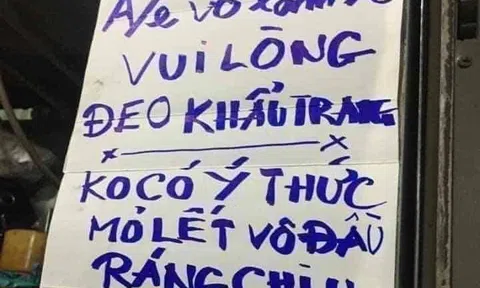 A/e vô
VUI LÒNG
ĐEO KHẨU TRANG
KO CÓ Ý THỨC
MỎ LẾT VÔ ĐẦU
RÁNG CHỊU